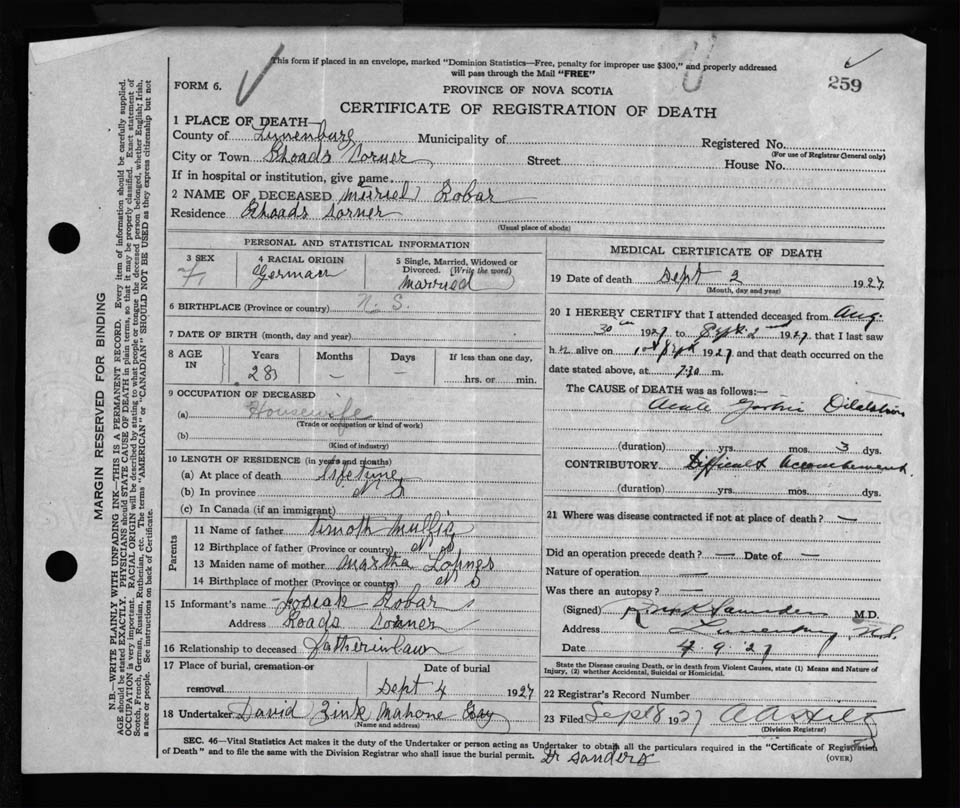 This form if placed in an envelope, marked "Dominion Statistics—Free, penalty for improper use $300," and properly addressed
will pass through the Mail "FREE"
FORM 6.
259
PROVINCE OF NOVA SCOTIA
CERTIFICATE OF REGISTRATION OF DEATH
1 PLACE OF DEATH
County of Lunenburg Municipality of Registered No.
(For use of Registrar General only)
City or Town Rhoads Corner Street House No.
If in hospital or institution, give name
2 NAME OF DECEASED Muriel Robar
Residence Rhoads Corner
(Usual place of abode)
PERSONAL AND STATISTICAL INFORMATION
3 SEX 4 RACIAL ORIGIN 5 Single, Married, Widowed or
Divorced. (Write the word)
F German Married
6 BIRTHPLACE (Province or country) N. S.
7 DATE OF BIRTH (month, day and year)
8 AGE IN Years Months Days If less than one day,
28 — — hrs. or min.
9 OCCUPATION OF DECEASED
(a) Housewife
(Trade or occupation or kind of work)
(b)
(Kind of industry)
10 LENGTH OF RESIDENCE (in years and months)
(a) At place of death lifetime
(b) In province N S
(c) In Canada (if an immigrant)
Parents
11 Name of father
12 Birthplace of father (Province or country) N S
13 Maiden name of mother Martha
14 Birthplace of mother (Province or country) N S
15 Informant's name Josiah Robar
Address Roads Corner
16 Relationship to deceased Fatherinlaw
17 Place of burial, cremation or Date of burial
removal Sept 4 1927
18 Undertaker David Zink Mahone Bay
(Name and address)
MEDICAL CERTIFICATE OF DEATH
19 Date of death Sept 2 1927
(Month, day and year)
20 I HEREBY CERTIFY that I attended deceased from Aug.
30 1927 to Sept. 2 1927, that I last saw
h alive on Sept 1927 and that death occurred on
date stated above, at 7.30 m.
The CAUSE of DEATH was as follows:—
Acute Gastric Dilatation
(duration) yrs. mos. 3 dys.
CONTRIBUTORY Difficult Accouchement
(duration) yrs. mos. dys.
21 Where was disease contracted if not at place of death? —
Did an operation precede death? — Date of —
Nature of operation —
Was there an autopsy? —
(Signed) M.D.
Address Lunenburg, N.S.
Date 9.27
State the Disease causing Death, or in death from Violent Causes, state (1) Means and Nature of
Injury, (2) whether Accidental, Suicidal or Homicidal.
22 Registrar's Record Number
23 Filed Sept 8 1927
(Division Registrar)
SEC. 46—Vital Statistics Act makes it the duty of the Undertaker or person acting as Undertaker to obtain all the particulars required in the "Certificate of Registration
of Death" and to file the same with the Division Registrar who shall issue the burial permit. Dr Sanders
(OVER)
MARGIN RESERVED FOR BINDING
N.B.—WRITE PLAINLY WITH UNFADING INK—THIS IS A PERMANENT RECORD. Every item of information should be carefully supplied.
AGE should be stated EXACTLY. PHYSICIANS should STATE CAUSE OF DEATH in plain terms, so that it may be properly classified. Exact statement of
OCCUPATION is very important. RACIAL ORIGIN will be described by stating to what people or tongue the deceased person belonged, whether English, Irish,
Scotch, French, German, Russian, Ruthenian, etc. The terms "AMERICAN" or "CANADIAN" SHOULD NOT BE USED as they express citizenship but not
a race or people. See instructions on back of Certificate.